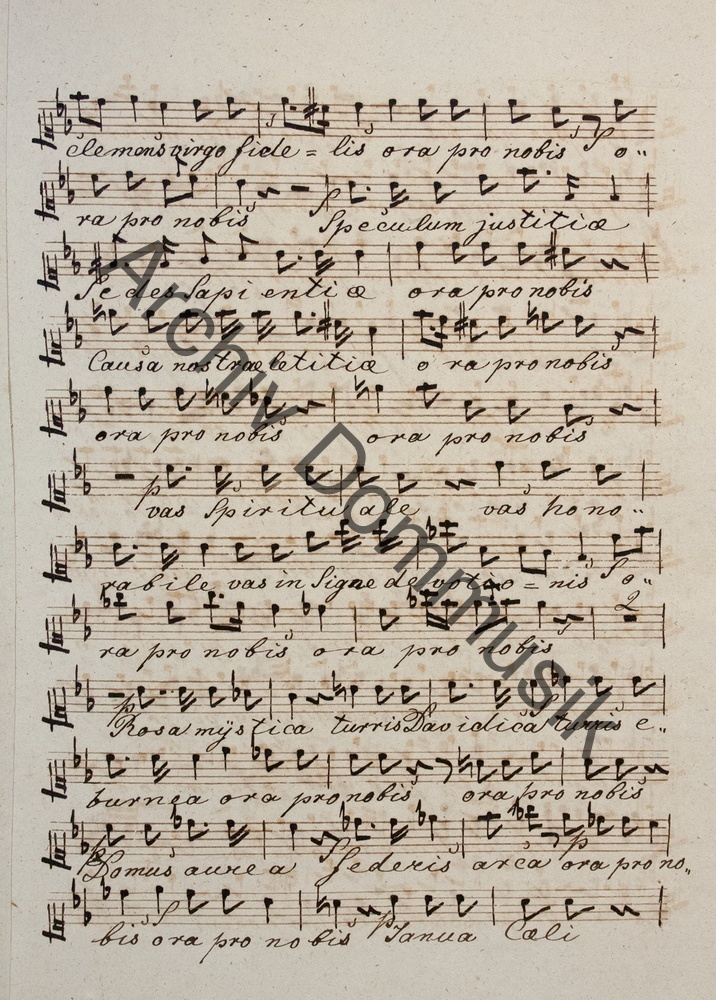 clemens virgo fide = lis ora pro nobis o"
ra pro nobis Speculum justitiæ
Sedes Sapientiæ ora pro nobis
Causa nostræ letitiæ o ra pro nobis
ora pro nobis ora pro nobis
vas Spirituale vas hono"
rabile vas insigne devotio = nis o"
2
ra pro nobis ora pro nobis
Rosa mÿstica turris Davidica turris e"
burnea ora pro nobis ora pro nobis
Domus aurea federis arca ora pro no"
bis ora pro nobis Janua Cœli
Archiv Dommusik